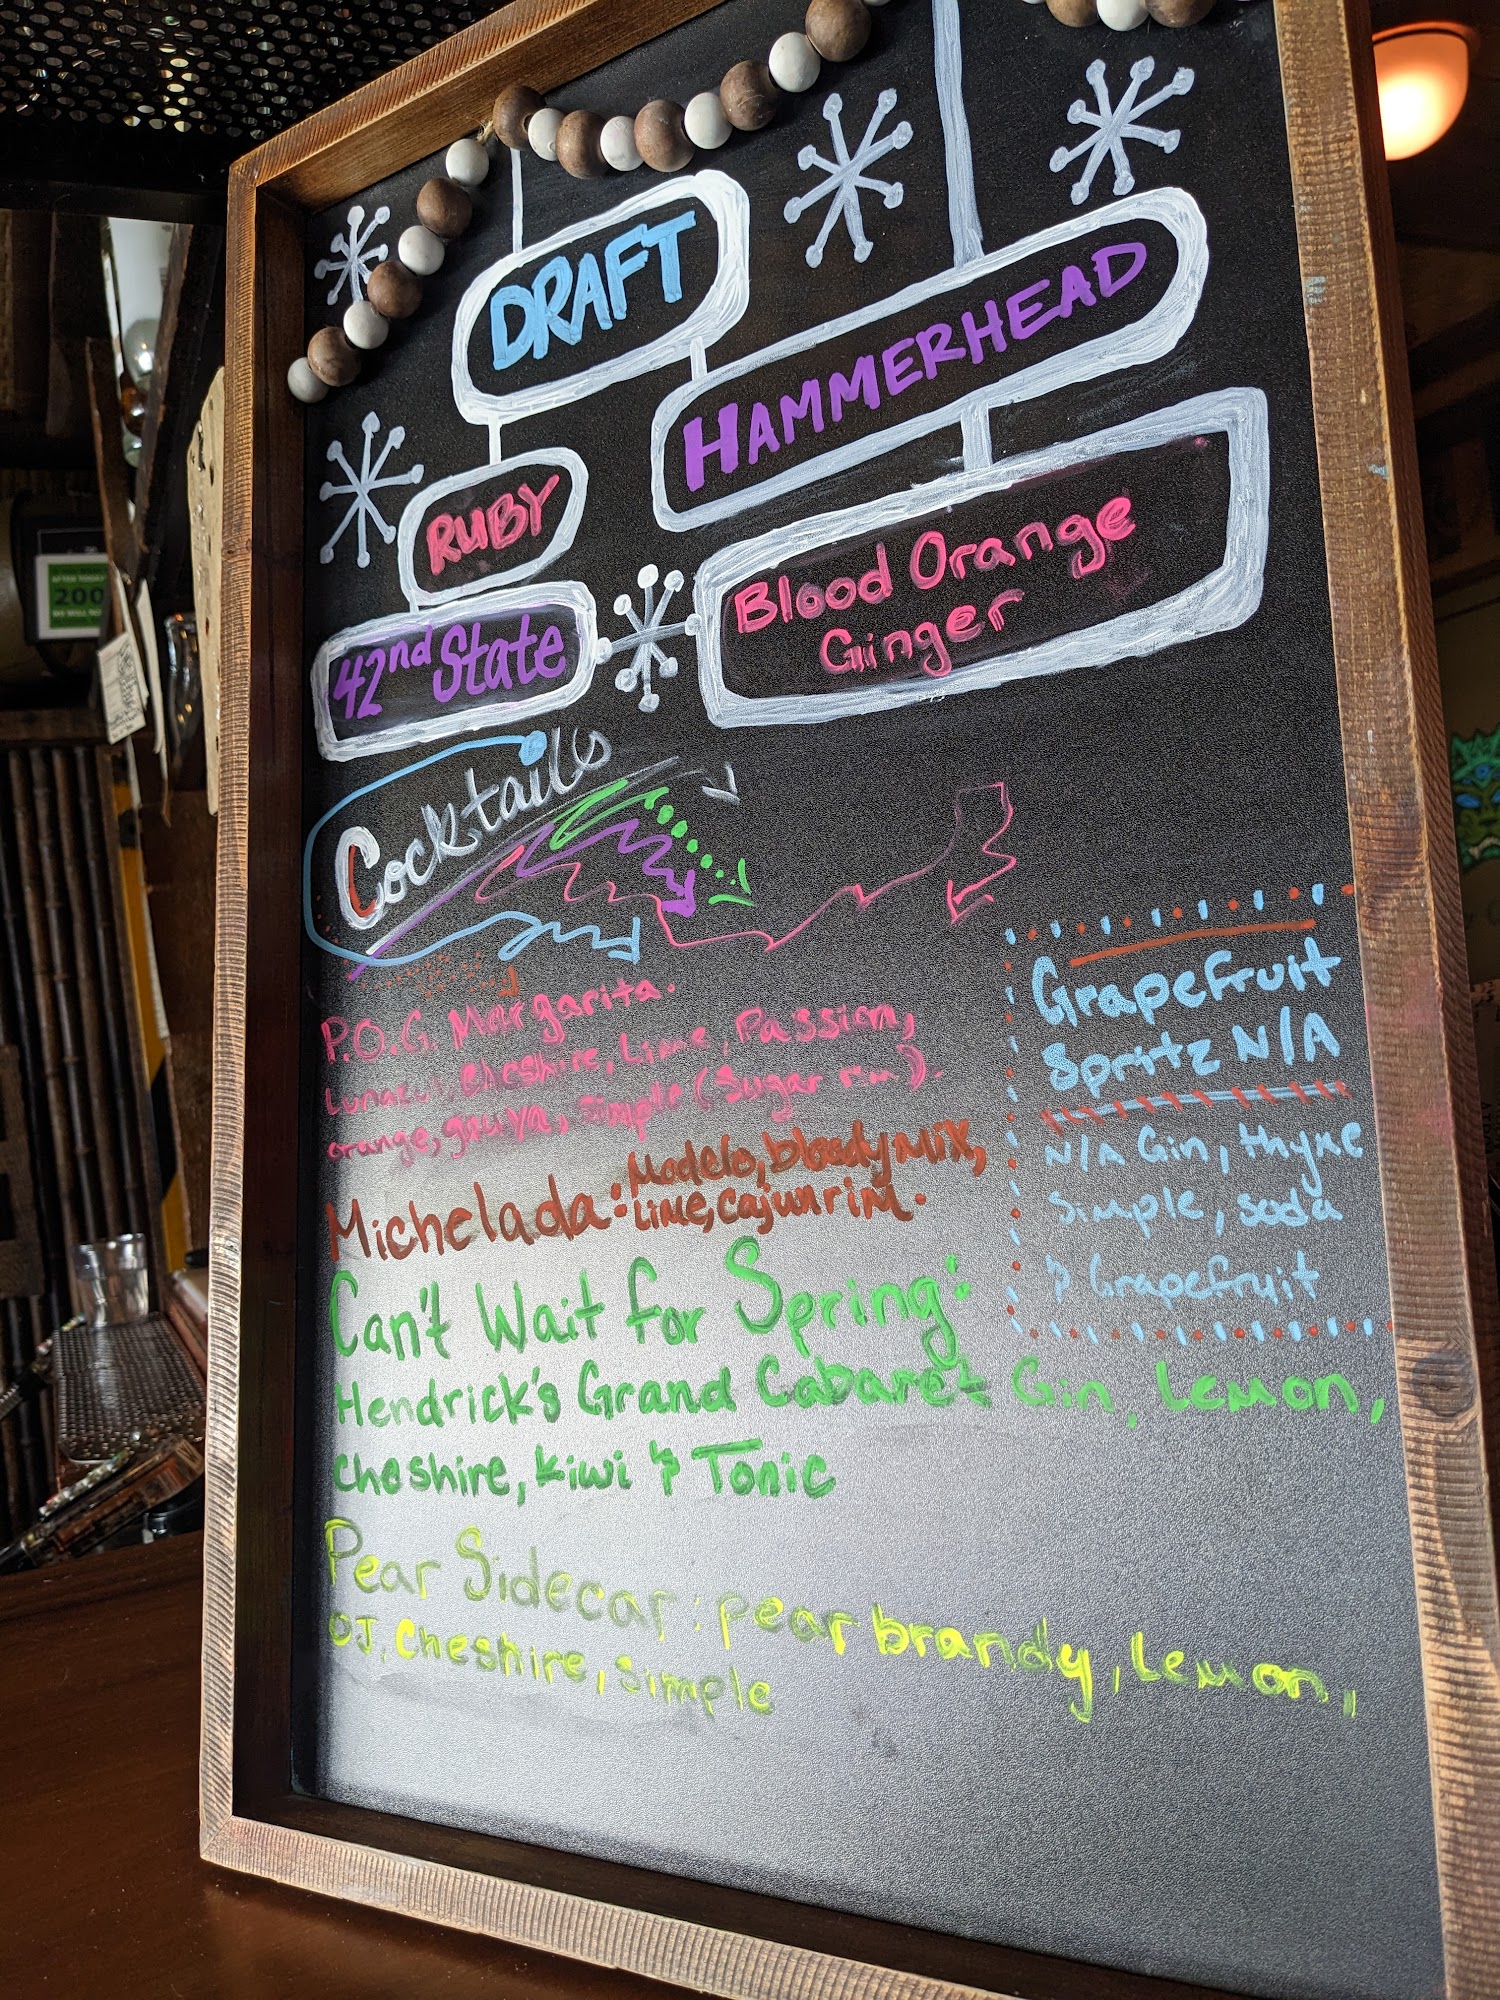 DRAFT
HAMMERHEAD
RUBY
Blood Orange
Ginger
42nd State
Cocktails
P.O.G. Margarita.
Lunazul, Cheshire, Lime, Passion,
orange, guava, simple (sugar rim).
Michelada: Modelo, bloody mix,
Lime, cajun rim.
Can't Wait for Spring:
Hendrick's Grand Cabaret Gin, Lemon,
Cheshire, kiwi & Tonic
Pear Sidecar: pear brandy, Lemon,
OJ, Cheshire, simple
Grapefruit
Spritz N/A
N/A Gin, thyme
simple, soda
& Grapefruit
200